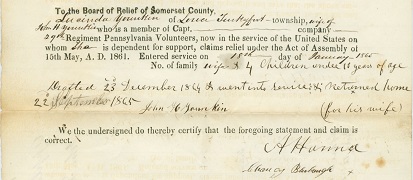 To the Board of Relief of Somerset County.
Lucinda Younkin of Lower Turkeyfoot township, wife of
John H Younkin who is a member of Capt. company
Regiment Pennsylvania Volunteers, now in the service of the United States on
whom She is dependent for support, claims relief under the Act of Assembly of
15th May, A. D. 1861. Entered service on day of January 1865
No. of family wife & 4 Children under 12 years of age
Drafted 23 December 1864 & went into service & returned home
22 September 1865
John H Younkin (for his wife)
We the undersigned do hereby certify that the foregoing statement and claim is
correct.
A Hanna